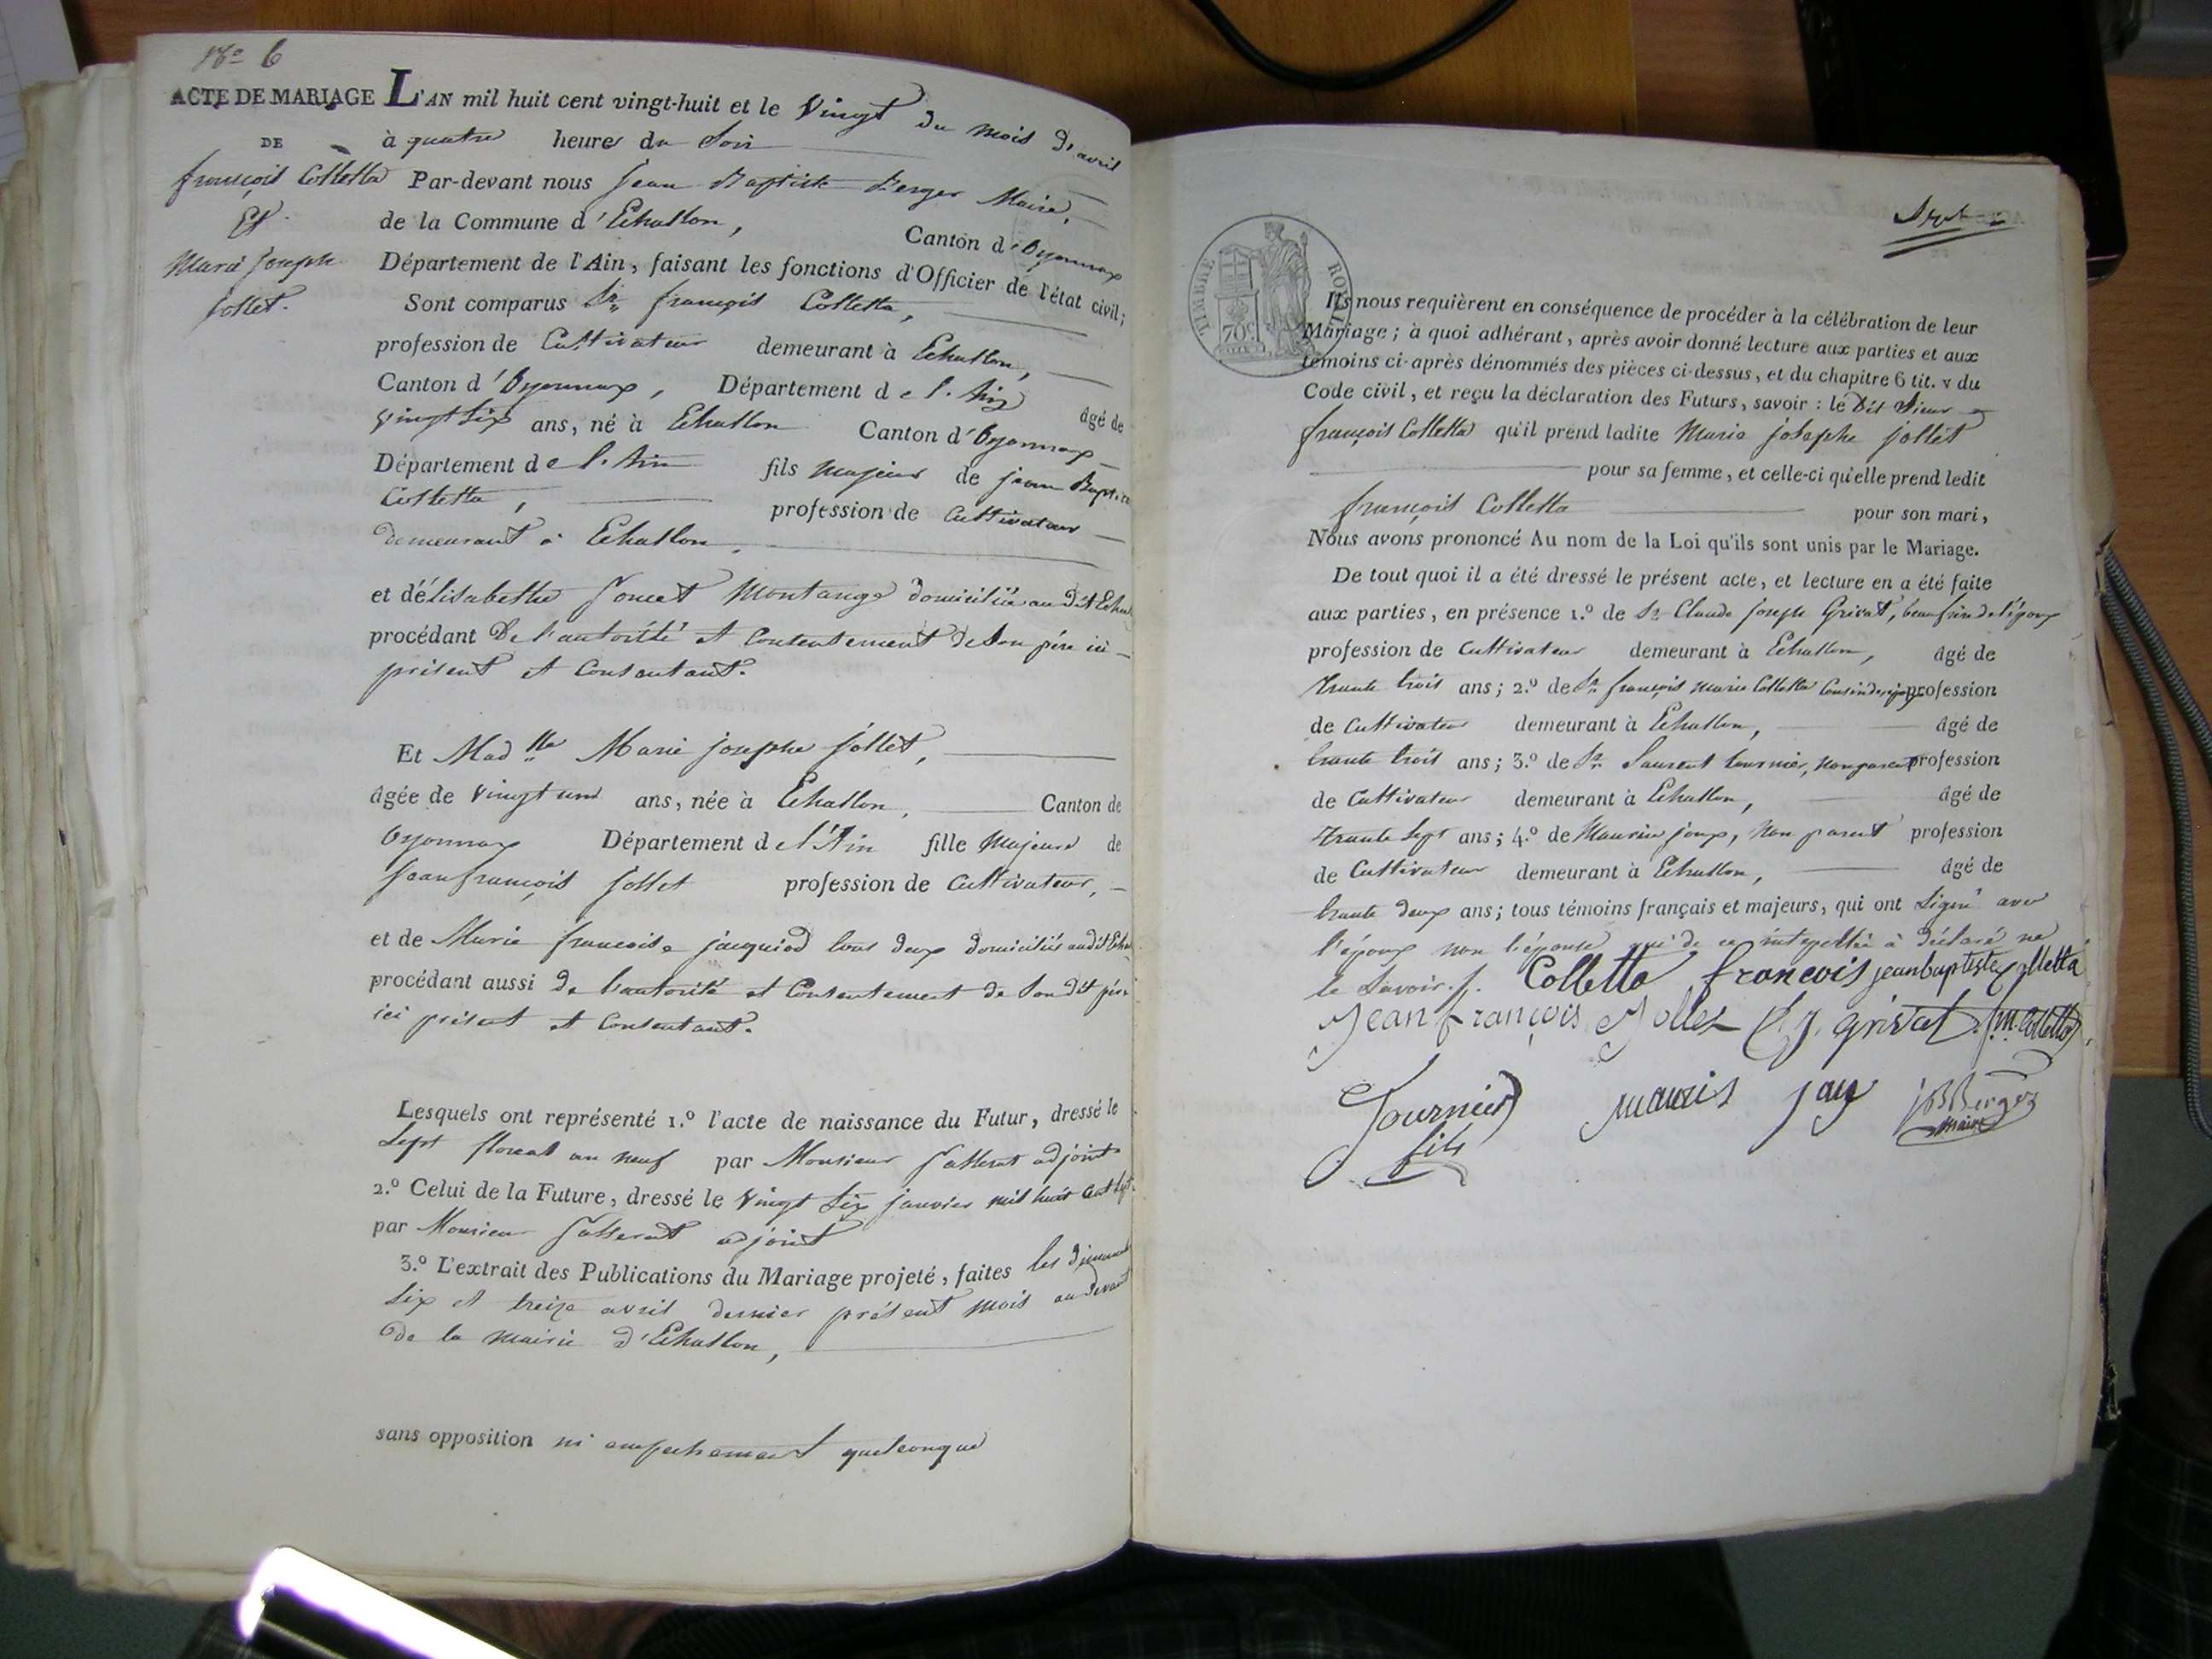 No 6
ACTE DE MARIAGE
DE
françois Colletta
Et
Marie Josephe
Jollet.
L'AN mil huit cent vingt-huit et le Vingt du mois d'avril
à quatre heures du Soir
Par-devant nous Jean Baptiste Berger Maire,
de la Commune d'Echallon, Canton d'Oyonnax
Département de l'Ain, faisant les fonctions d'Officier de l'état civil;
Sont comparus Sr. françois Colletta,
profession de Cultivateur demeurant à Echallon,
Canton d'Oyonnax, Département de l'Ain âgé de
vingt Six ans, né à Echallon Canton d'Oyonnax
Département de l'Ain fils majeur de jean Bapt.
Colletta, profession de Cultivateur
demeurant à Echallon,
et d'élisabethe Montange domiciliée au dit
procédant De l'autorité et Consentement de Son père ici
présent et Consentant.
Et Madlle Marie josephe Jollet,
âgée de vingt un ans, née à Echallon, Canton de
Oyonnax Département de l'Ain fille Majeure de
Jean françois Jollet profession de Cultivateur,
et de Marie francoise jacquiod tous deux domiciliés au dit
procédant aussi de l'autorité et Consentement de Son dit père
ici présent et Consentant.
Lesquels ont représenté 1.º l'acte de naissance du Futur, dressé le
Sept floreal an neuf par Monsieur adjoint
2.º Celui de la Future, dressé le Vingt Six janvier mil huit cent Sept
par Monsieur adjoint
3.º L'extrait des Publications du Mariage projeté, faites les
Six et treize avril dernier présent mois au devant
de la mairie d'Echallon,
sans opposition ni empechement quelconque
Sept
TIMBRE ROYAL
70 c.
Ils nous requièrent en conséquence de procéder à la célébration de leur
Mariage; à quoi adhérant, après avoir donné lecture aux parties et aux
témoins ci-après dénommés des pièces ci-dessus, et du chapitre 6 tit. v du
Code civil, et reçu la déclaration des Futurs, savoir: le Dit Sieur
françois Colletta qu'il prend ladite Marie josephe jollet
pour sa femme, et celle-ci qu'elle prend ledit
françois Colletta pour son mari,
Nous avons prononcé Au nom de la Loi qu'ils sont unis par le Mariage.
De tout quoi il a été dressé le présent acte, et lecture en a été faite
aux parties, en présence 1.º de Sr Claude joseph Grivat, beau frère de l'époux
profession de Cultivateur demeurant à Echallon, âgé de
trente trois ans; 2.º de Sr. françois marie Colletta Cousin profession
de Cultivateur demeurant à Echallon, âgé de
trente trois ans; 3.º de Sr. Laurent tournier, non parent profession
de Cultivateur demeurant à Echallon, âgé de
trente Sept ans; 4.º de Maurice joux, non parent profession
de Cultivateur demeurant à Echallon, âgé de
trente deux ans; tous témoins français et majeurs, qui ont Signé avec
l'époux non l'épouse qui de ce interpellée à déclaré ne
le Savoir.
Colletta francois jeanbaptiste Colletta
Jean françois Jollet C. J. grivat f. m. Colletta
Tournier fils mauris jou JB Berger
maire